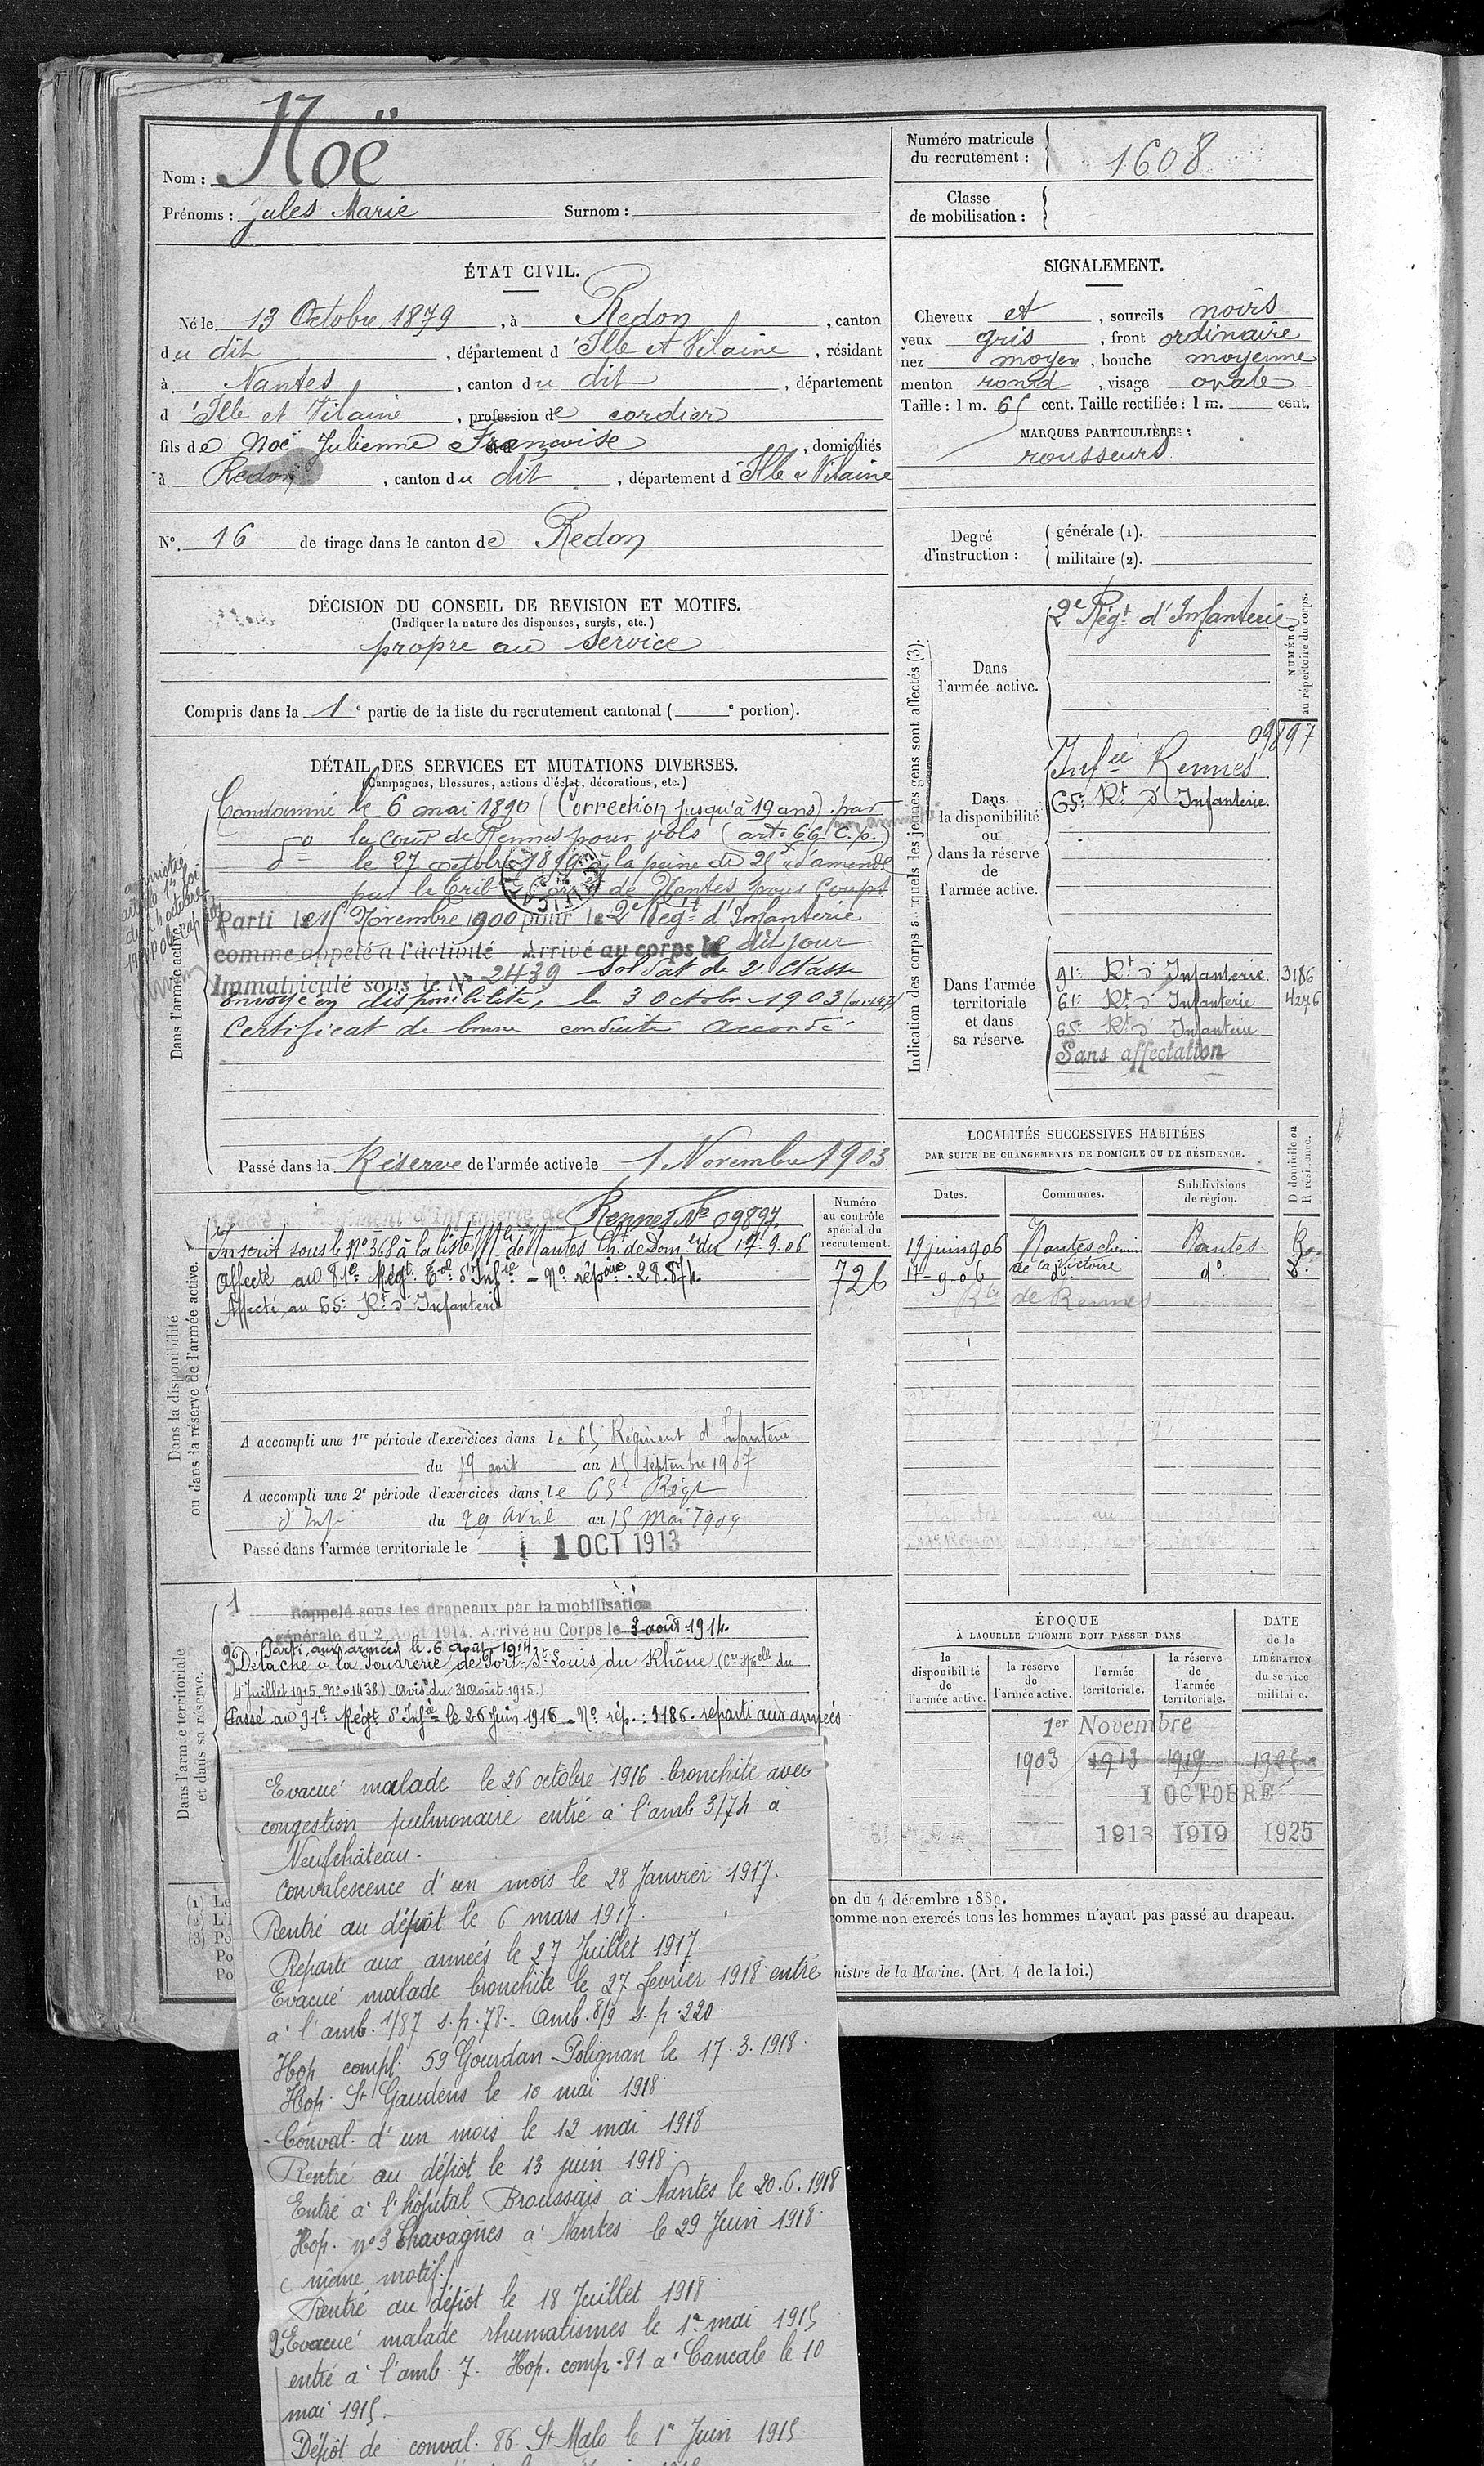 Nom : Noë
Prénoms : Jules Marie Surnom :
Numéro matricule
du recrutement : 1608
Classe
de mobilisation :
ÉTAT CIVIL.
Né le 13 Octobre 1879, à Redon, canton
du dit, département d'Ille et Vilaine, résidant
à Nantes, canton du dit, département
d'Ille et Vilaine, profession de cordier
fils de Noë Julienne Françoise, domiciliés
à Redon, canton du dit, département d'Ille & Vilaine
N°. 16 de tirage dans le canton de Redon
SIGNALEMENT.
Cheveux et, sourcils noirs
yeux gris, front ordinaire
nez moyen, bouche moyenne
menton rond, visage ovale
Taille : 1 m. 65 cent. Taille rectifiée : 1 m. cent.
MARQUES PARTICULIÈRES :
rousseurs
Degré
d'instruction :
générale (1).
militaire (2).
DÉCISION DU CONSEIL DE REVISION ET MOTIFS.
(Indiquer la nature des dispenses, sursis, etc.)
propre au service
Compris dans la 1e partie de la liste du recrutement cantonal ( e portion).
DÉTAIL DES SERVICES ET MUTATIONS DIVERSES.
(Campagnes, blessures, actions d'éclat, décorations, etc.)
Condamné le 6 mai 1890 (Correction jusqu'à 19 ans) par
la cour de Rennes pour vols (art. 66. C.p.)
d° le 27 octobre 1899 à la peine de 25f d'amende
par le Trib Corr de Nantes pour Coups
Parti le 15 Novembre 1900 pour le 2e Régt d'Infanterie
comme appelé à l'activité Arrivé au corps le dit jour
Immatriculé sous le N° 2439 Soldat de 2e Classe
envoyé en disponibilité, le 3 Octobre 1903
Certificat de bonne conduite accordé
Passé dans la Réserve de l'armée active le 1 Novembre 1903
Dans l'armée active.
Indication des corps auxquels les jeunes gens sont affectés (3).
Dans
l'armée active.
2e Régt d'Infanterie
NUMÉRO
au répertoire du corps.
09897
Dans
la disponibilité
ou
dans la réserve
de
l'armée active.
Infie Rennes
65e Rt d'Infanterie.
Dans l'armée
territoriale
et dans
sa réserve.
91e Rt d'Infanterie. 3186
61e Rt d'Infanterie 4276
65e Rt d'Infanterie
Sans affectation
Dans la disponibilité
ou dans la réserve de l'armée active.
Rennes N° 09897.
Inscrit sous le N° 368 à la liste de Nantes Ch. de Dom. du 17.9.06
Affecté au 81e Régt Tal d'Infie - N° répoire 2874.
Affecté au 65e Rt d'Infanterie
Numéro
au contrôle
spécial du
recrutement.
726
A accompli une 1re période d'exercices dans le 65e Régiment d'Infanterie
du 19 août au 15 septembre 1907
A accompli une 2e période d'exercices dans le 65e Régt
d'Inf. du 29 Avril au 15 Mai 1909
Passé dans l'armée territoriale le 1 OCT 1913
LOCALITÉS SUCCESSIVES HABITÉES
PAR SUITE DE CHANGEMENTS DE DOMICILE OU DE RÉSIDENCE.
Dates. Communes. Subdivisions
de région. D domicile ou
R résidence.
19 juin 906 Nantes chemin Nantes R.
de la Victoire
17-9-06 d° d° D.
Rte de Rennes
Dans l'armée territoriale
et dans sa réserve.
1 Rappelé sous les drapeaux par la mobilisation
générale du 2 Août 1914. Arrivé au Corps le 3 août 1914.
Parti aux armées le 6 août 1914
Détaché à la Poudrerie de Port-St Louis du Rhône (Cre Mlle du
4 Juillet 1915. N° 01438). Avis du 31 août 1915.
Passé au 91e Régt d'Infie le 26 Juin 1916 - N° rép. : 3186. reparti aux armées
ÉPOQUE
À LAQUELLE L'HOMME DOIT PASSER DANS
la
disponibilité
de
l'armée active.
la réserve
de
l'armée active.
l'armée
territoriale.
la réserve
de
l'armée
territoriale.
DATE
de la
LIBÉRATION
du service
militaire.
1er Novembre
1903 1913 1919 1925
1 OCTOBRE
1913 1919 1925
on du 4 décembre 1889.
comme non exercés tous les hommes n'ayant pas passé au drapeau.
nistre de la Marine. (Art. 4 de la loi.)
Evacué malade le 26 octobre 1916 bronchite avec
congestion pulmonaire entré à l'amb 3/74 à
Neufchâteau.
Convalescence d'un mois le 28 Janvier 1917.
Rentré au dépôt le 6 mars 1917.
Reparti aux armées le 27 Juillet 1917.
Evacué malade bronchite le 27 février 1918 entré
à l'amb. 1/87 s.p. 78. - amb. 8/9 s.p. 220.
Hop compl. 59 Gourdan Polignan le 17.3.1918.
Hop. St Gaudens le 10 mai 1918
- Conval. d'un mois le 12 mai 1918
Rentré au dépôt le 13 juin 1918.
Entré à l'hôpital Broussais à Nantes le 20.6.1918
Hop. n° 3 Chavagnes à Nantes le 29 Juin 1918.
(même motif.)
Rentré au dépôt le 18 Juillet 1918
2 Evacué malade rhumatismes le 1er mai 1915
entré à l'amb. 7. Hop. comp. 81 à Cancale le 10
mai 1915.
Dépôt de conval. 86 St Malo le 1er Juin 1915.